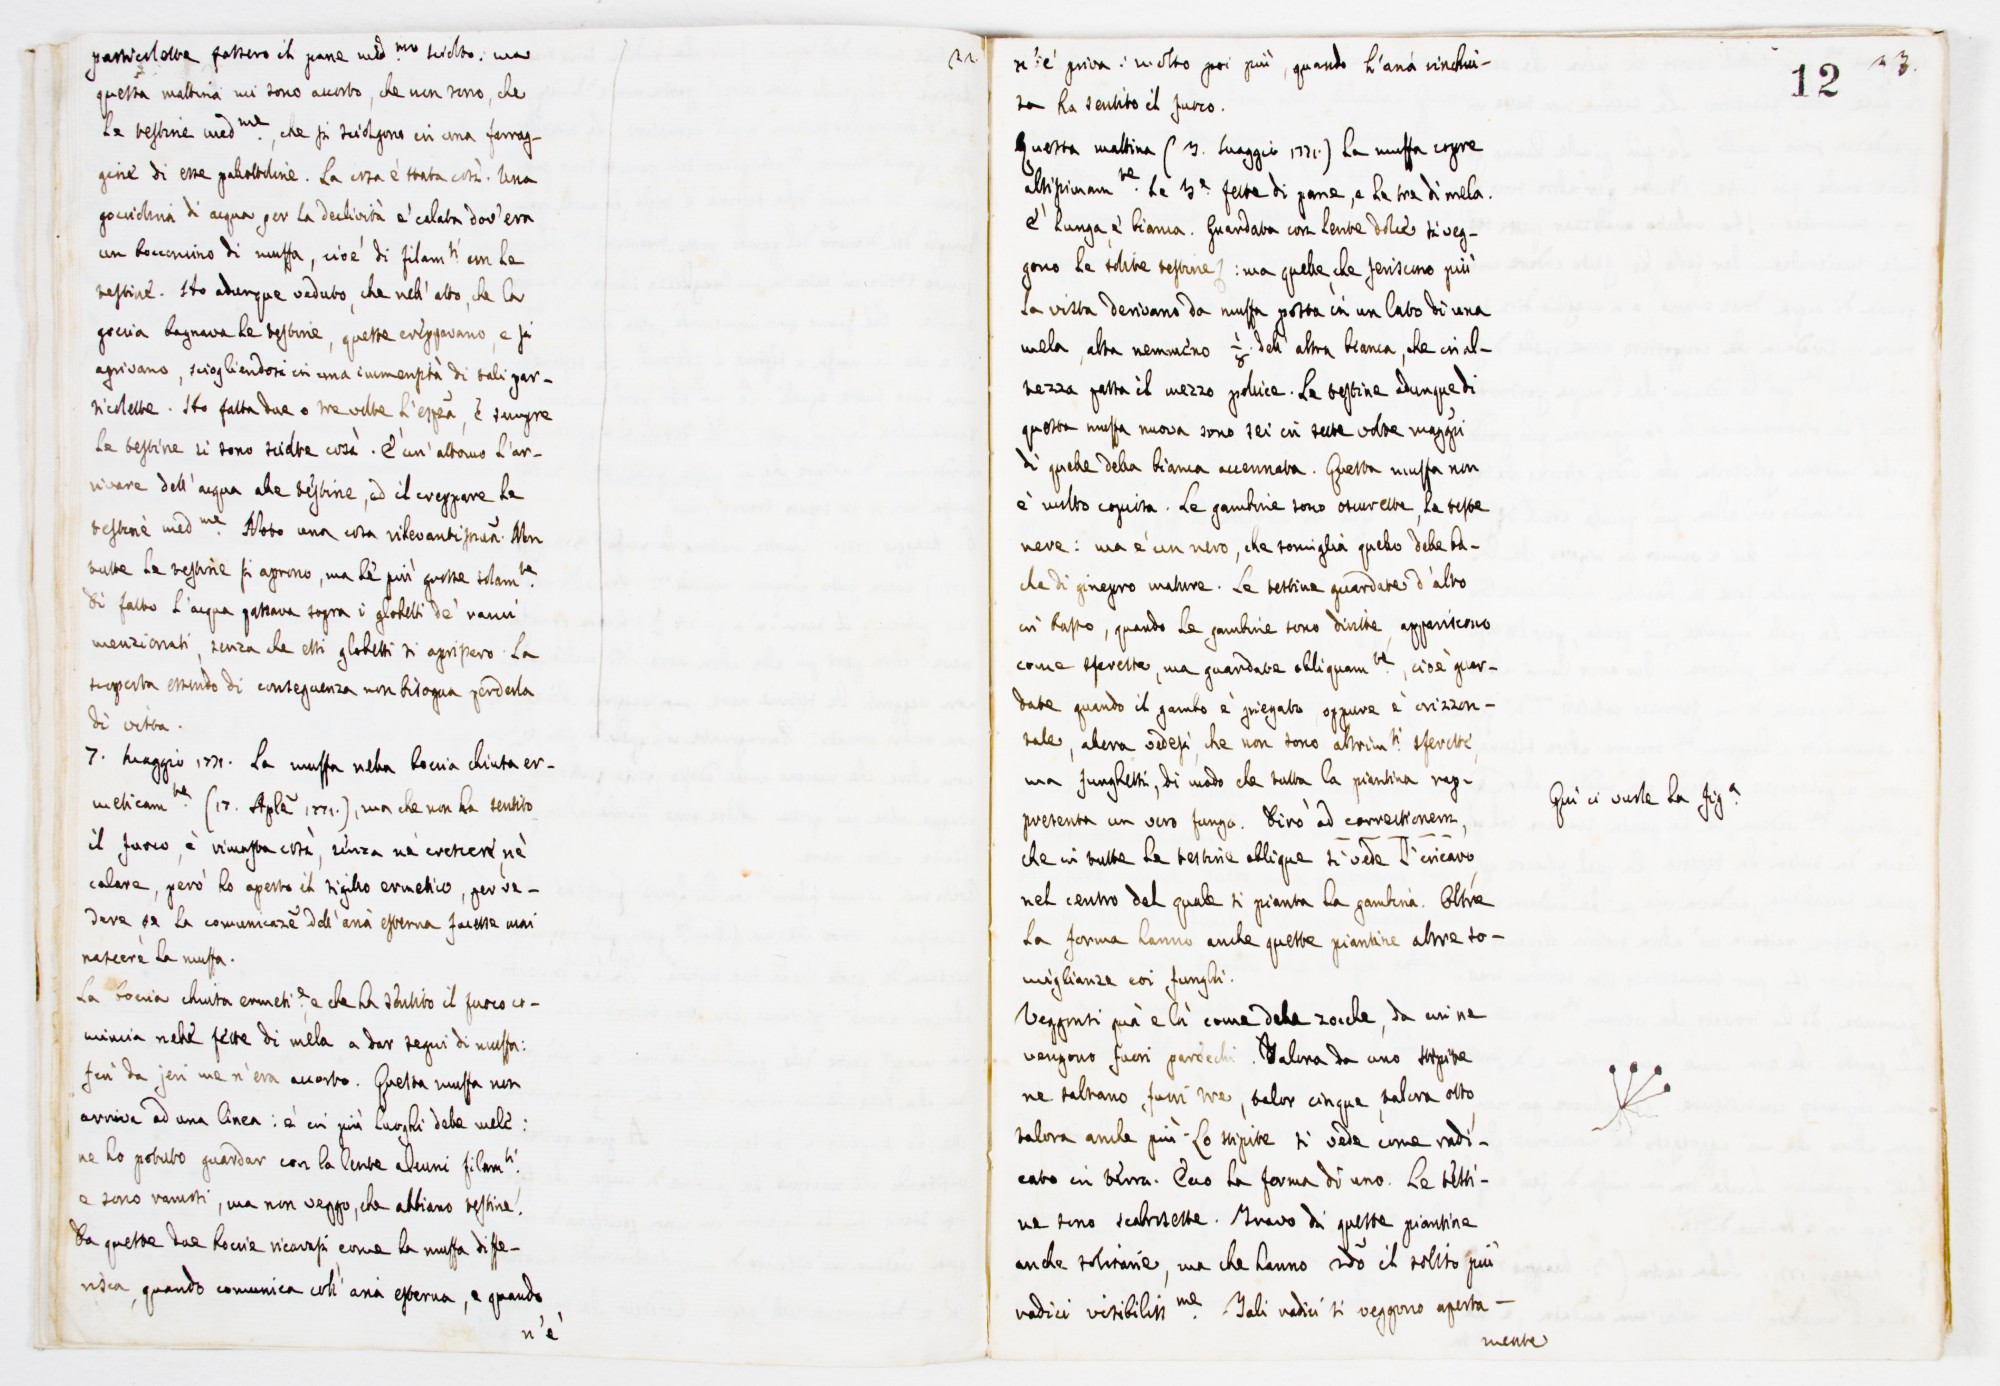 22.
particolette fossero il pane med.mo sciolto: ma
questa mattina mi sono accorto, che non sono, che
le testine med.me, che si sciolgono in una farrag-
gine di esse pallottoline. La cosa è stata così. Una
gocciolina di acqua per la declività è calata dov'era
un bocconcino di muffa, cioè di filam.ti con le
testine. Ho adunque veduto, che nell'atto, che la
goccia bagnava le testine, queste creppavano, e si
aprivano, sciogliendosi in una immensità di tali par-
ticolette. Ho fatta due o tre volte l'espza, e sempre
le testine si sono sciolte così. È un'attomo l'ar-
rivare dell'acqua alle testine, ed il creppare le
testine med.me Noto una cosa rilevantissima. Non
tutte le testine si aprono, ma le più grosse solam.te.
Di fatto l'acqua passava sopra i globetti de' rami
menzionati, senza che essi globetti si aprissero. La
scoperta essendo di conseguenza non bisogna perderla
di vista.
7. Maggio 1771. La muffa nella boccia chiusa er-
meticam.te (17. Aple 1771.), ma che non ha sentito
il fuoco, è rimasta così, senza nè crescere nè
calare, però ho aperto il sigillo ermetico, per ve-
dere se la comunicazne dell'aria esterna facesse mai
nascere la muffa.
La boccia chiusa ermeti.e, e che ha sentito il fuoco co-
mincia nelle fette di mela a dar segni di muffa:
fin da jeri me n'era accorto. Questa muffa non
arriva ad una linea: è in più luoghi delle mele:
ne ho potuto guardar con la lente alcuni filam.ti.
e sono ramosi, ma non veggo, che abbiano testine.
Da queste due boccie ricavasi come la muffa diffe-
risca, quando comunica coll'aria esterna, e quando
n'è
12
23.
n'è priva: molto poi più, quando l'aria rinchiu-
sa ha sentito il fuoco.
Questa mattina (7. Maggio 1771.) la muffa copre
altissimam.te le 3.e fette di pane, e le tre di mela.
È lunga, è bianca. Guardata con lente dolce si veg-
gono le solite testine: ma quelle, che feriscono più
la vista derivano da muffa posta in un lato di una
mela, alta nemmeno 1/8 dell'altra bianca, che in al-
tezza passa il mezzo pollice. Le testine adunque di
questa muffa nuova sono sei in sette volte maggri
di quelle della bianca accennata. Questa muffa non
è molto copiosa. Le gambine sono oscurette, le teste
nere: ma è un nero, che somiglia quello delle ba-
che di ginepro mature. Le testine guardate d'alto
in basso, quando le gambine sono diritte, appariscono
come sferette, ma guardate obliquam.te, cioè guar-
date quando il gambo è piegato, oppure è orizzon-
tale, allora vedesi, che non sono altrim.ti sferette,
ma funghetti, di modo che tutta la piantina rap-
presenta un vero fungo. Dirò ad correctionem,
che in tutte le testine oblique si vede l'incavo,
nel centro del quale si pianta la gambina. Oltre
la forma hanno anche queste piantine altre so-
miglianze coi funghi.
Veggonsi quà e là come delle zocche, da cui ne
vengono fuori parecchi. Talora da uno stipite
ne saltano fuori tre, talor cinque, talora otto,
talora anche più. Lo stipite si vede come radi-
cato in terra. Ecco la forma di uno. Le testi-
ne sono scabrosette. Trovo di queste piantine
anche solitarie, ma che hanno sotto il solito più
radici visibiliss.me. Tali radici si veggono aperta-
mente
Qui ci vuole la fig.a